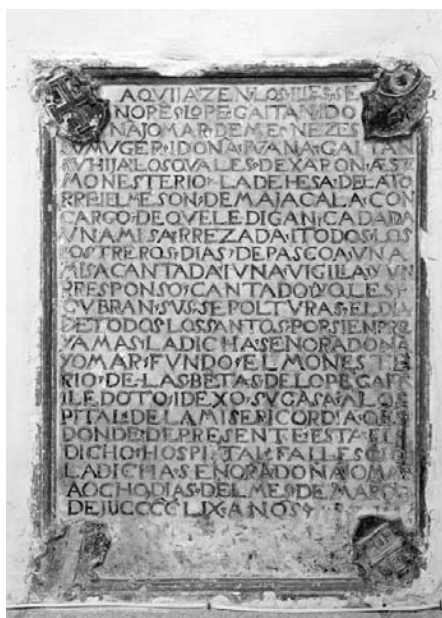 AQVIJAZEN:LOS:ILLES:SE
NORES:LOPE:GAITAN:IDO
NAJOMAR:DEME:NEZES
SVMVGER:IDONA:JVANA:GAITAN
SVHIJA:LOSQVALES:DEXARON:AEST
MONESTERIO:LADEHESA:DELATO
RREIELMESON:DEMAJACALA:CON
CARGO:DEQVELEDIGAN:CADADIA
VNAMISA:RREZADA:ITODOS:LOS
POSTREROS:DIAS:DEPASCOA:VNA
MISACANTADA:IVNA:VIGILIA:YVN
RRESPONSO:CANTADO:YQLES
CVBRAN:SVS:SEPOLTVRAS:ELDIA
DETODOS:LOSSANTOS:PORSIENPRE
YAMAS:LADICHA:SENORADONA
YOMAR:FVNDO:ELMONESTE
RIO:DE:LASBETAS:DELOPEGAIT
ILEDOTO:IDEXO:SVCASA:ALOS
PITAL:DELAMISERICORDIA:QES
DONDE:DEPRESENTE:ESTA:EL
DICHO:HOSPI:TAL:FALLESCIO
LADICHA:SENORADONA:IOMA
AOCHODIAS:DELMES:DEMARÇO
DEJUCCCCLIX:ANOS